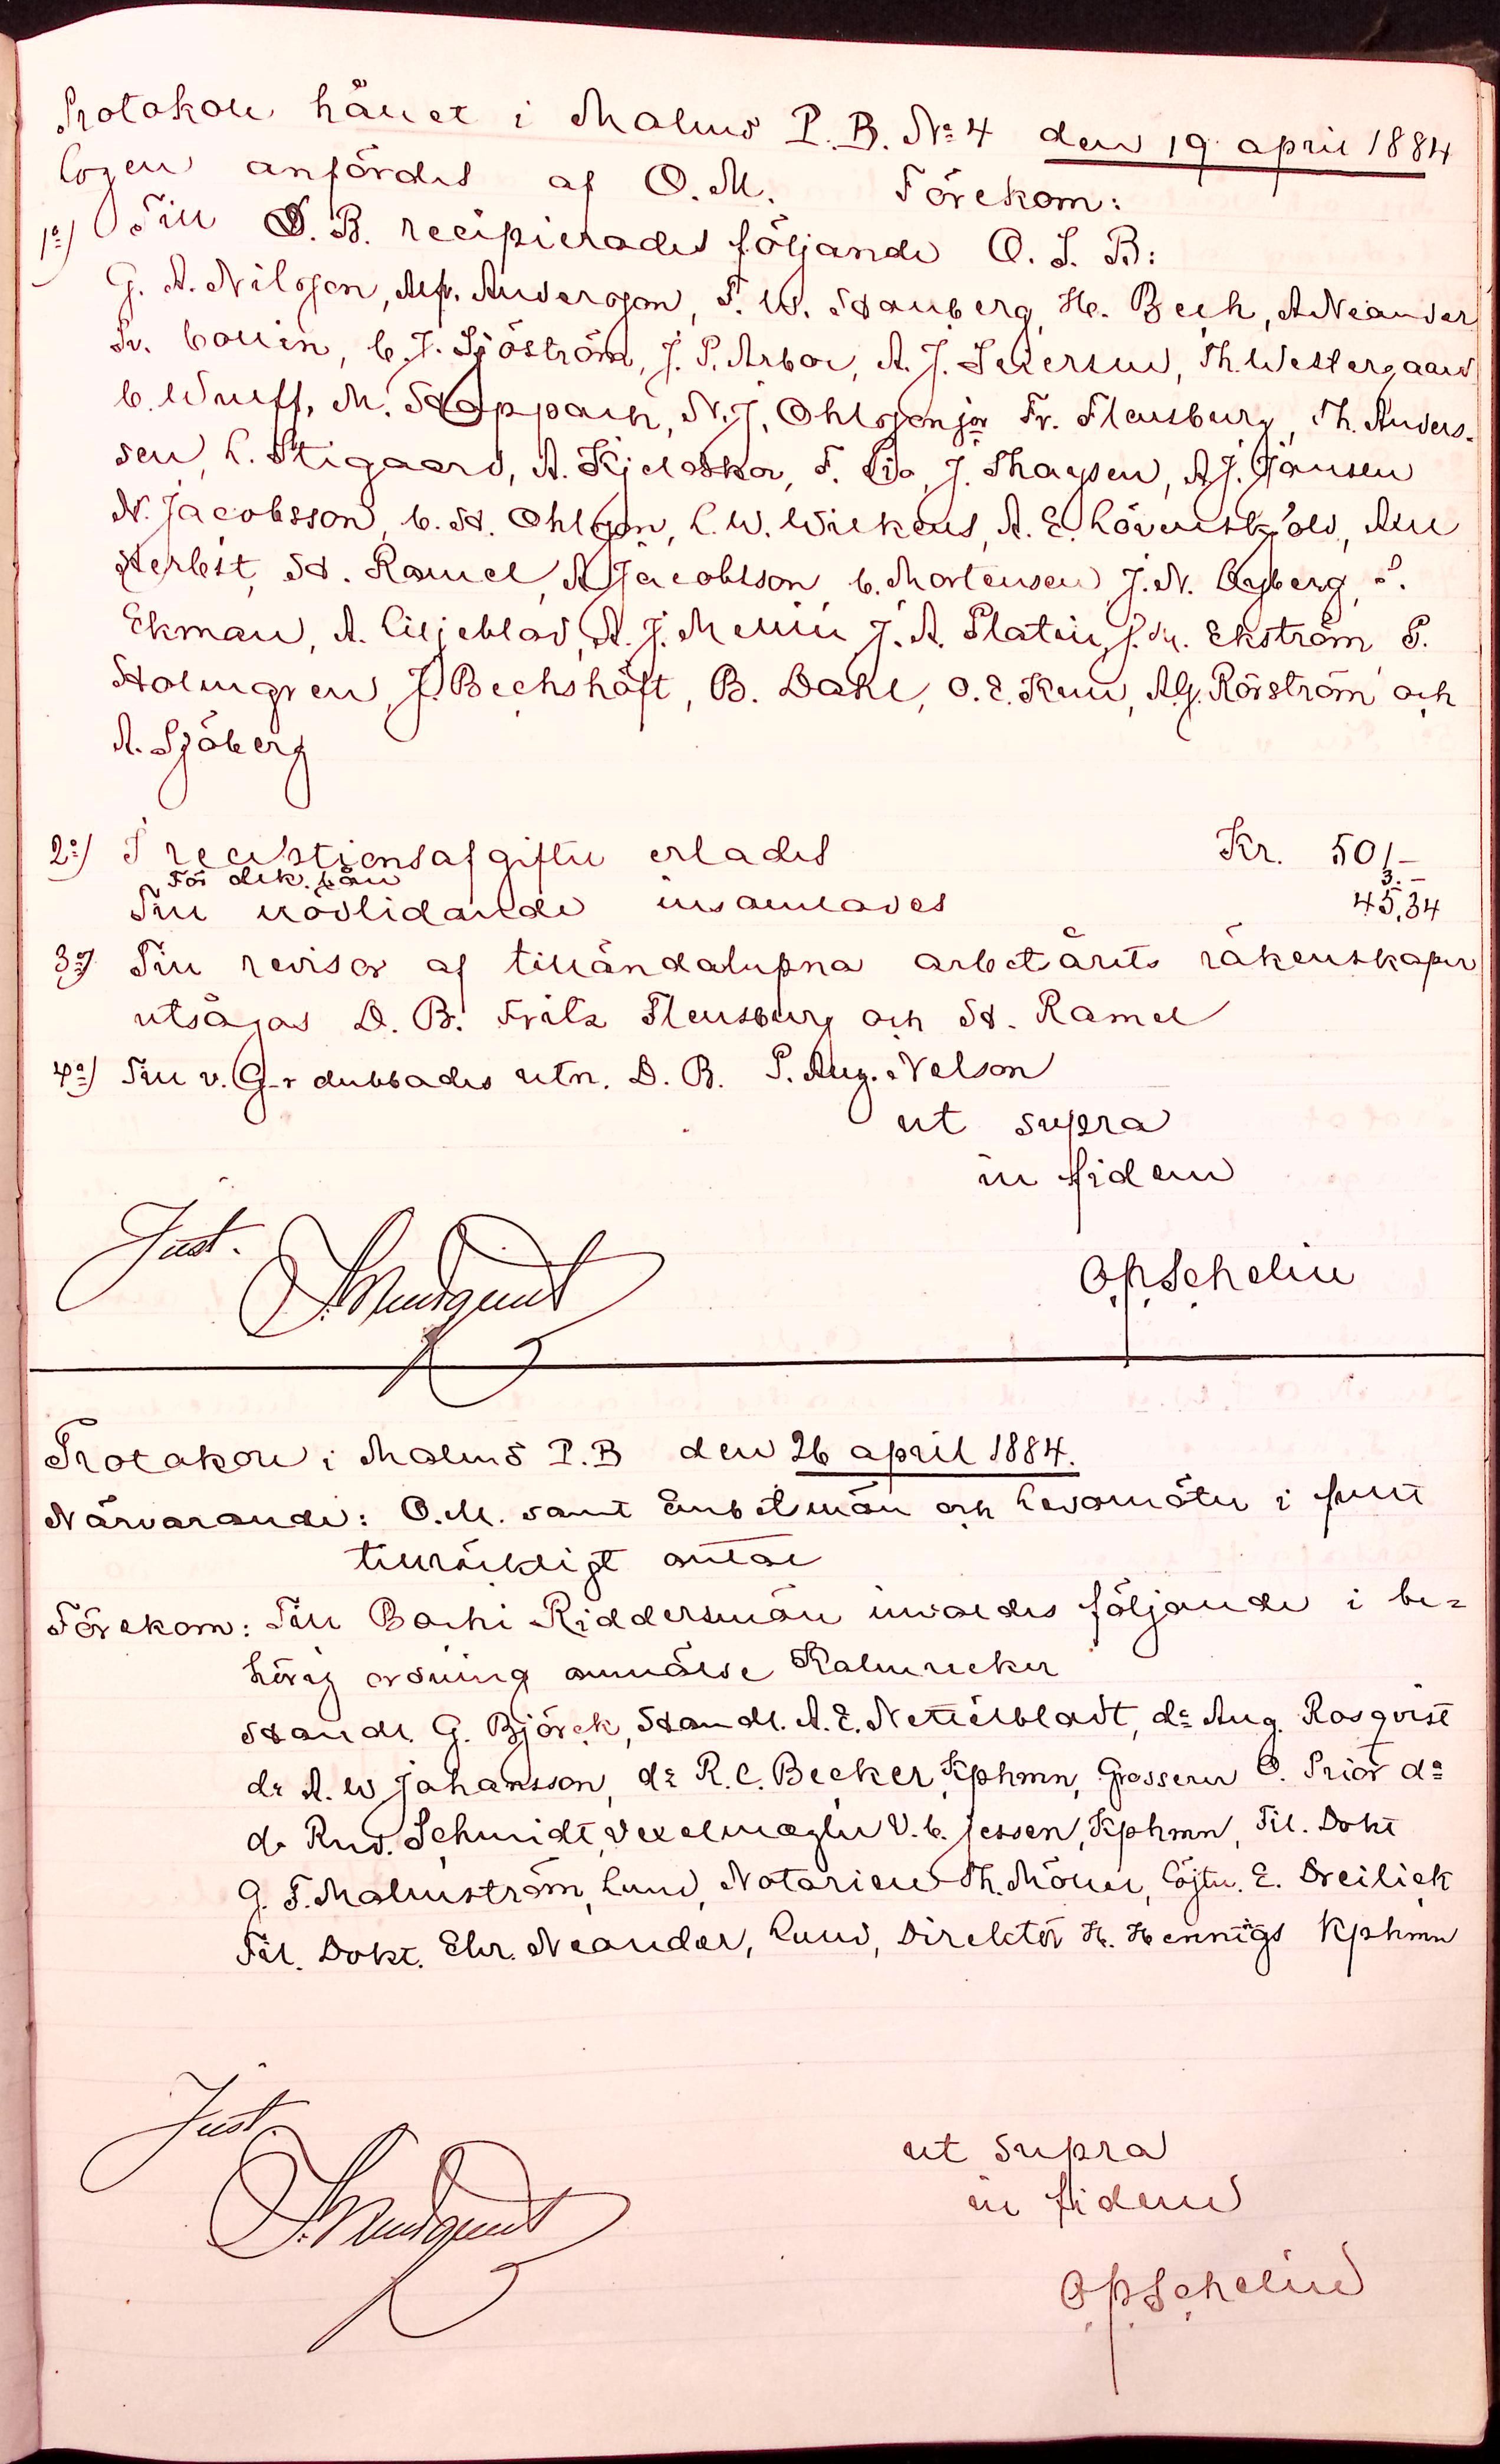 Protokoll hållet i Malmö P. B. No 4 den 19 april 1884
Logen anfördes af O. M. Förekom:
1o) Till O. B. recipierades följande O. S. B:
G. A. Nilsson, Alfr. Andersson, F. W. Hamberg, H. Bech, A Neander
Fr. Collin, C. J. Sjöström, J. P. Arbo, A. J. Petersen, Th. Westergaard
C. Wulff, M. Stoppach, N. J. Ohlsson jor Fr. Flensburg, Th. Anders-
sen, L. Stigaard, A. Kjellska, F. Lio, J. Thaysen, A J. Jönsen
N. Jacobsson, C. H. Ohlsson, L. W. Wilkens, A. E. Lövenskjöld, Alb
Herbst, H. Ramel, A Jacobsson C. Mortensen J. N. Nyberg, P.
Ekman, A. Liljeblad, A. J. Mellin J. A. Platin, J. M. Ekström P.
Holmgren, J. Bechshöft, B. Dahl, O. E. Kull, A. G. Rörström och
A. Sjöberg
2o) I receptionsafgifter erlades Kr. 501 –
För dek. bån 3. –
Till nödlidande insamlades 45,34
3o) Till revisor af tilländalupna arbetsårets räkenskaper
utsågos D. B. Fritz Flensburg och H. Ramel
4o) Till v. G-r dubbades utn. D. B. P. Aug. Nelson
ut supra
in fidem
Just. OPSchelin
Protokoll i Malmö P. B den 26 april 1884.
Närvarande: O. M. samt Embetsmän och Ledamöter i fullt
tillräckligt antal
Förekom: Till Bachi Riddersmän invaldes följande i be=
hörig ordning anmälde Kalmucker
Handl. G. Björck, Handl. A. E. Nettelbladt, do Aug. Rosqvist
do A. W Johansson, do R. C. Becker Kphmn, Grosserer O. Prior do
do Rud. Schmidt, Vexelmægler V. C. Jessen, Kphmn, Fil. Dokt
G. F. Malmström, Lund, Notarien Th. Möller, Löjtn. E. Dreilick
Fil. Dokt. Ehr. Neander, Lund, Direktör H. Hennigs Kphmn
Just. ut supra
in fidem
OPSchelin